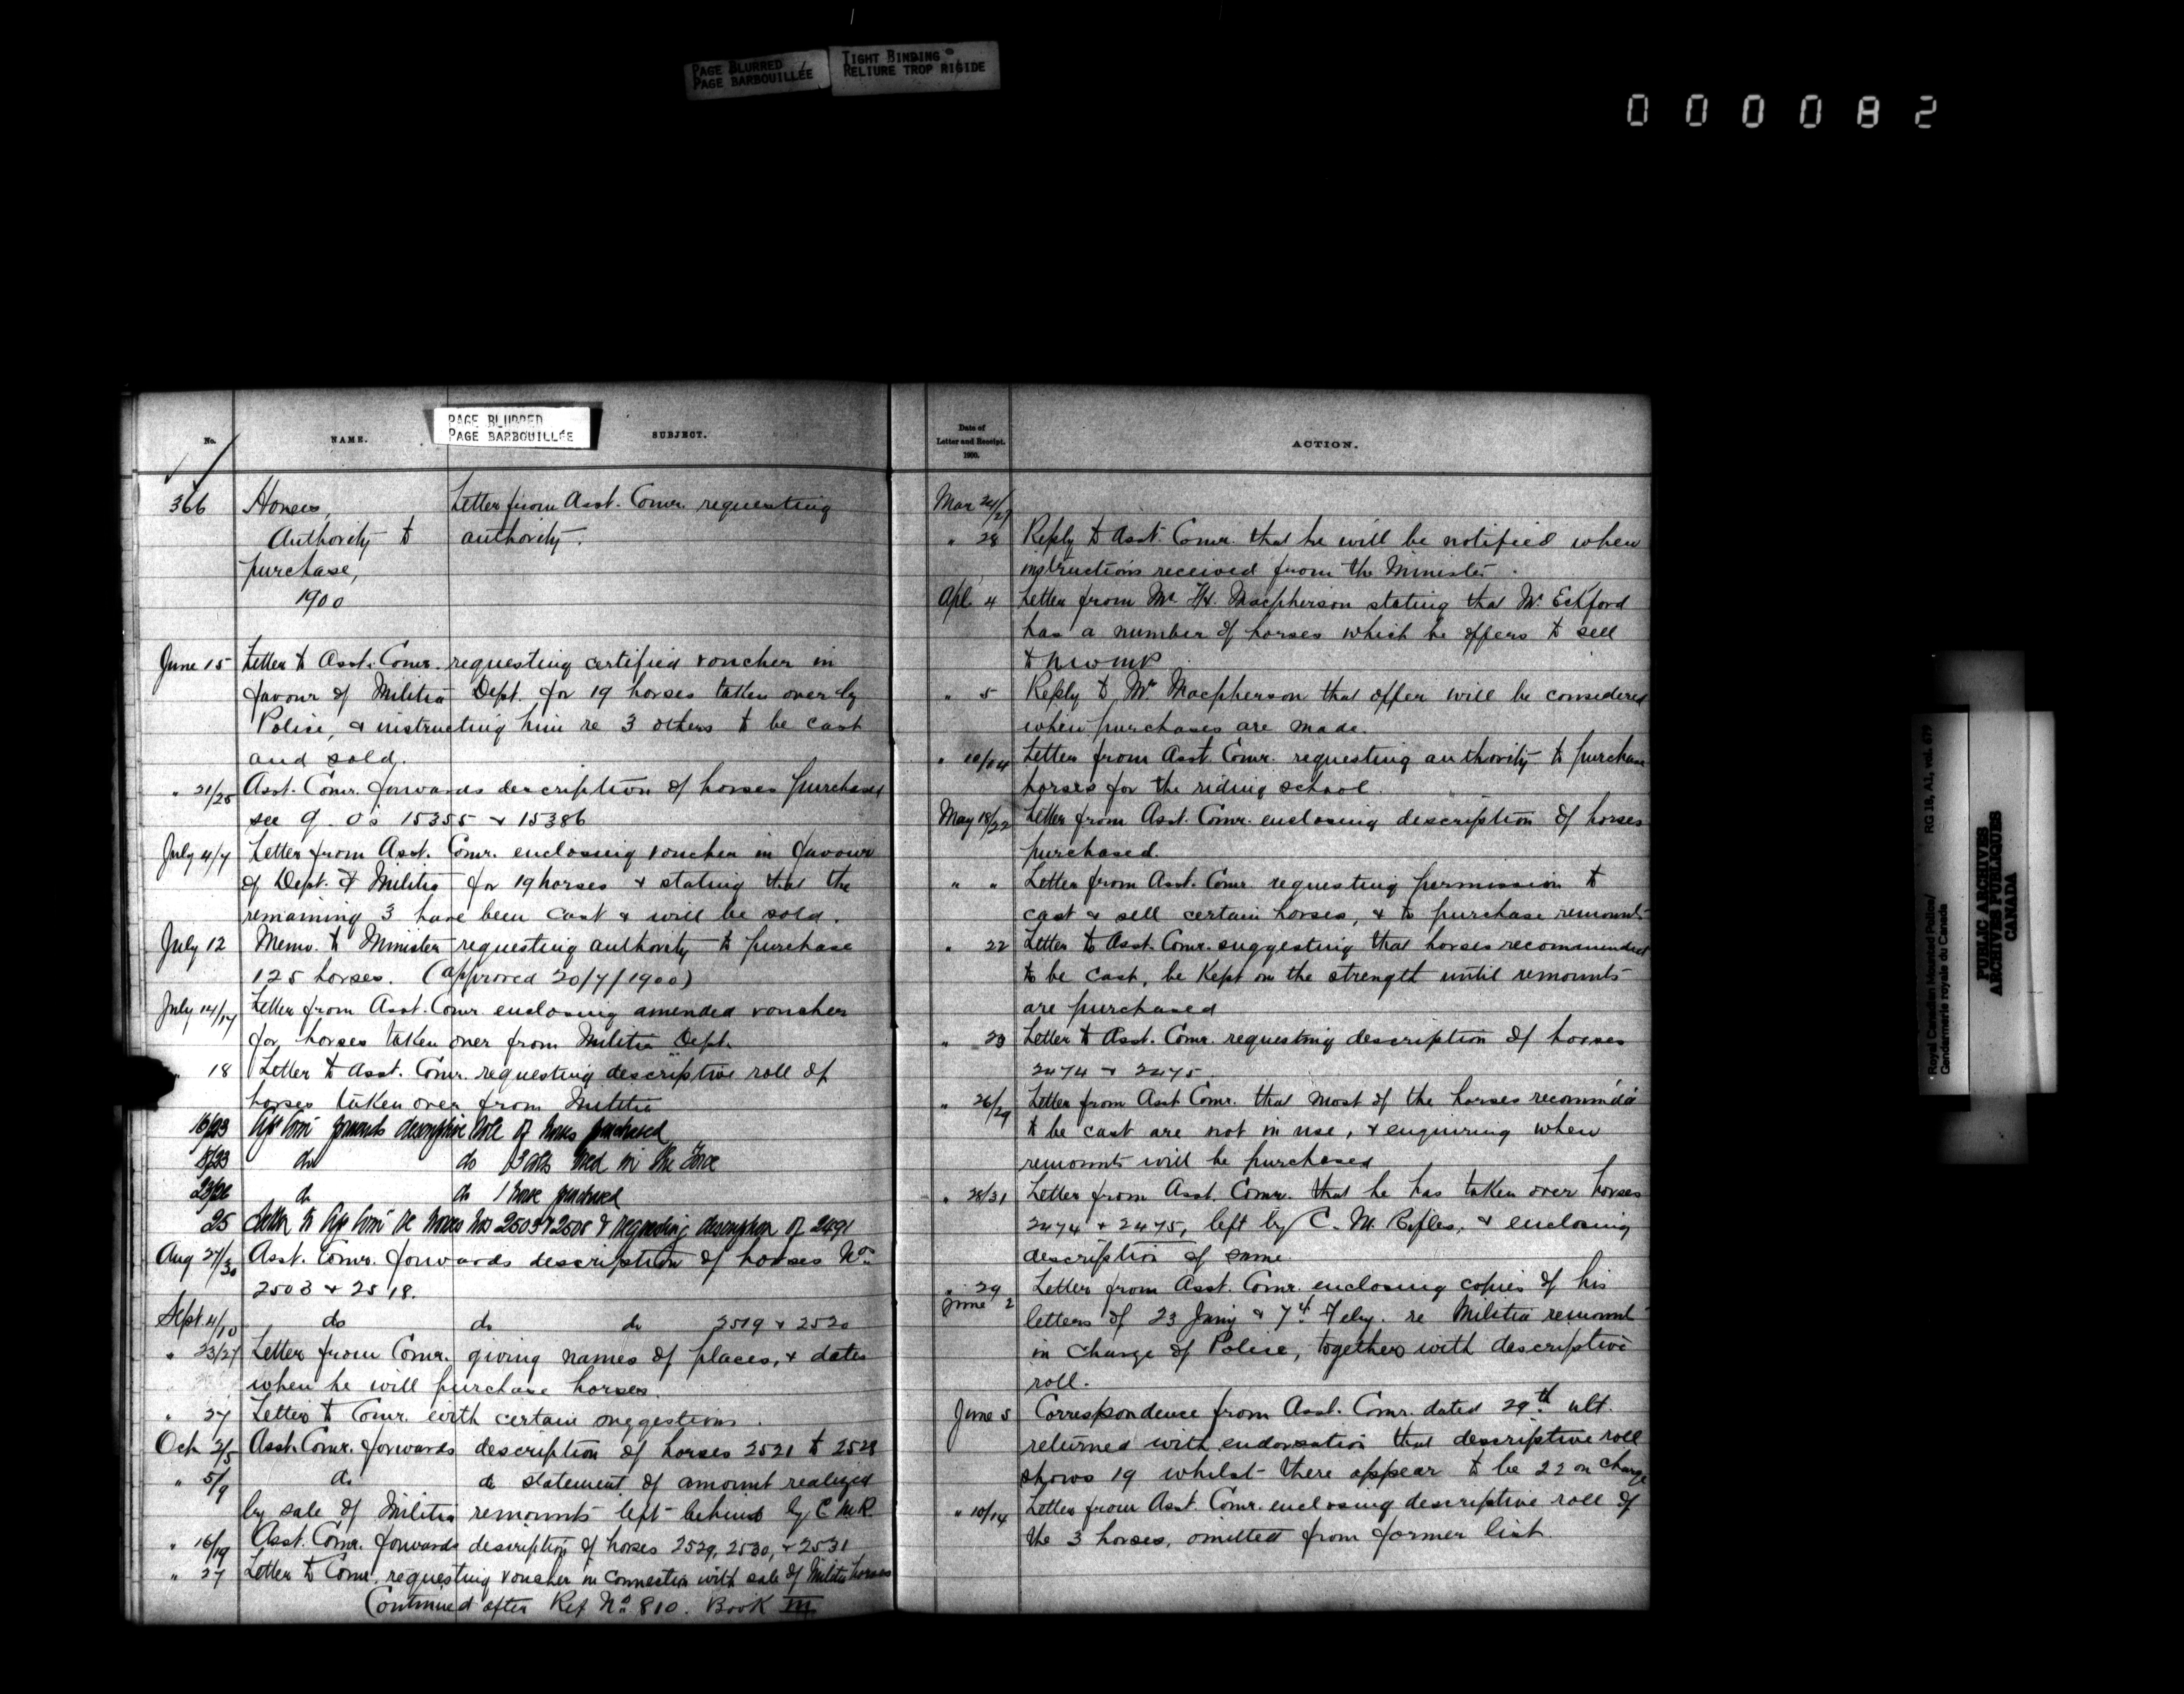 PAGE BLURRED
PAGE BARBOUILLÉE
TIGHT BINDING
RELIURE TROP RIGIDE
000082
PAGE BLURRED
PAGE BARBOUILLÉE
No.
NAME.
SUBJECT.
366 Horses, Letter from Asst. Comr. requesting
Authority to authority.
purchase,
1900
June 15 Letter to Asst. Comr. requesting certified voucher in
favour of Militia Dept. for 19 horses taken over by
Police, & instructing him re 3 others to be cast
and sold.
" 21/25 Asst. Comr. forwards description of horses purchased
see q. o's 15355 & 15386
July 4/7 Letter from Asst. Comr. enclosing voucher in favour
of Dept. of Militia for 19 horses & stating that the
remaining 3 have been cast & will be sold.
July 12 Memo. to Minister requesting authority to purchase
125 horses. (approved 20/7/1900)
July 14/17 Letter from Asst. Comr. enclosing amended voucher
for horses taken over from Militia Dept.
" 18 Letter to Asst. Comr. requesting descriptive roll of
horses taken over from Militia
forwards descriptive of horses purchased
do do in the Force
do do 1 horse purchased
25 Letter to Comr re horses Nos 2503 & 2508 & requesting description of 2491
Aug 27/30 Asst. Comr. forwards description of horses Nos
2503 & 2518.
Sept. 4/10 do do do 2519 & 2520
" 23/27 Letter from Comr. giving names of places, & dates
when he will purchase horses.
" 27 Letter to Comr. with certain suggestions.
Oct 2/5 Asst. Comr. forwards description of horses 2521 to 2528
" 5/9 do do statement of amount realized
by sale of Militia remounts left behind by C M R.
" 16/19 Asst. Comr. forwards description of horses 2529, 2530, & 2531
" 27 Letter to Comr. requesting voucher in connection with sale of Militia horses
Continued after Ref No. 810. Book III
Date of
Letter and Receipt.
1900.
ACTION.
Mar 24/27
" 28 Reply to Asst. Comr. that he will be notified when
instructions received from the Minister.
Apl. 4 Letter from Mr. Macpherson stating that Mr. Eckford
has a number of horses which he offers to sell
to NWMP.
" 5 Reply to Mr Macpherson that offer will be considered
when purchases are made.
" 10/14 Letter from Asst. Comr. requesting authority to purchase
horses for the riding school.
May 18/22 Letter from Asst. Comr. enclosing description of horses
purchased.
" " Letter from Asst. Comr. requesting permission to
cast & sell certain horses, & to purchase remounts
" 22 Letter to Asst. Comr. suggesting that horses recommended
to be cast, be kept on the strength until remounts
are purchased
" 23 Letter to Asst. Comr. requesting description of horses
2474 & 2475.
" 26/29 Letter from Asst Comr. that most of the horses recomm'd'd
to be cast are not in use, & enquiring when
remounts will be purchased
" 28/31 Letter from Asst. Comr. that he has taken over horses
2474 & 2475, left by C. M. Rifles, & enclosing
description of same.
" 29 Letter from Asst. Comr. enclosing copies of his
June 2 letters of 23 Jany & 7th Feby. re Militia remounts
in charge of Police, together with descriptive
roll.
June 5 Correspondence from Asst. Comr. dated 29th ult.
returned with endorsation that descriptive roll
shows 19 whilst there appear to be 22 on charge
" 10/14 Letter from Asst. Comr. enclosing descriptive roll of
the 3 horses, omitted from former list.
Royal Canadian Mounted Police/
Gendarmerie royale du Canada
RG 18, A1, vol. 679
PUBLIC ARCHIVES
ARCHIVES PUBLIQUES
CANADA